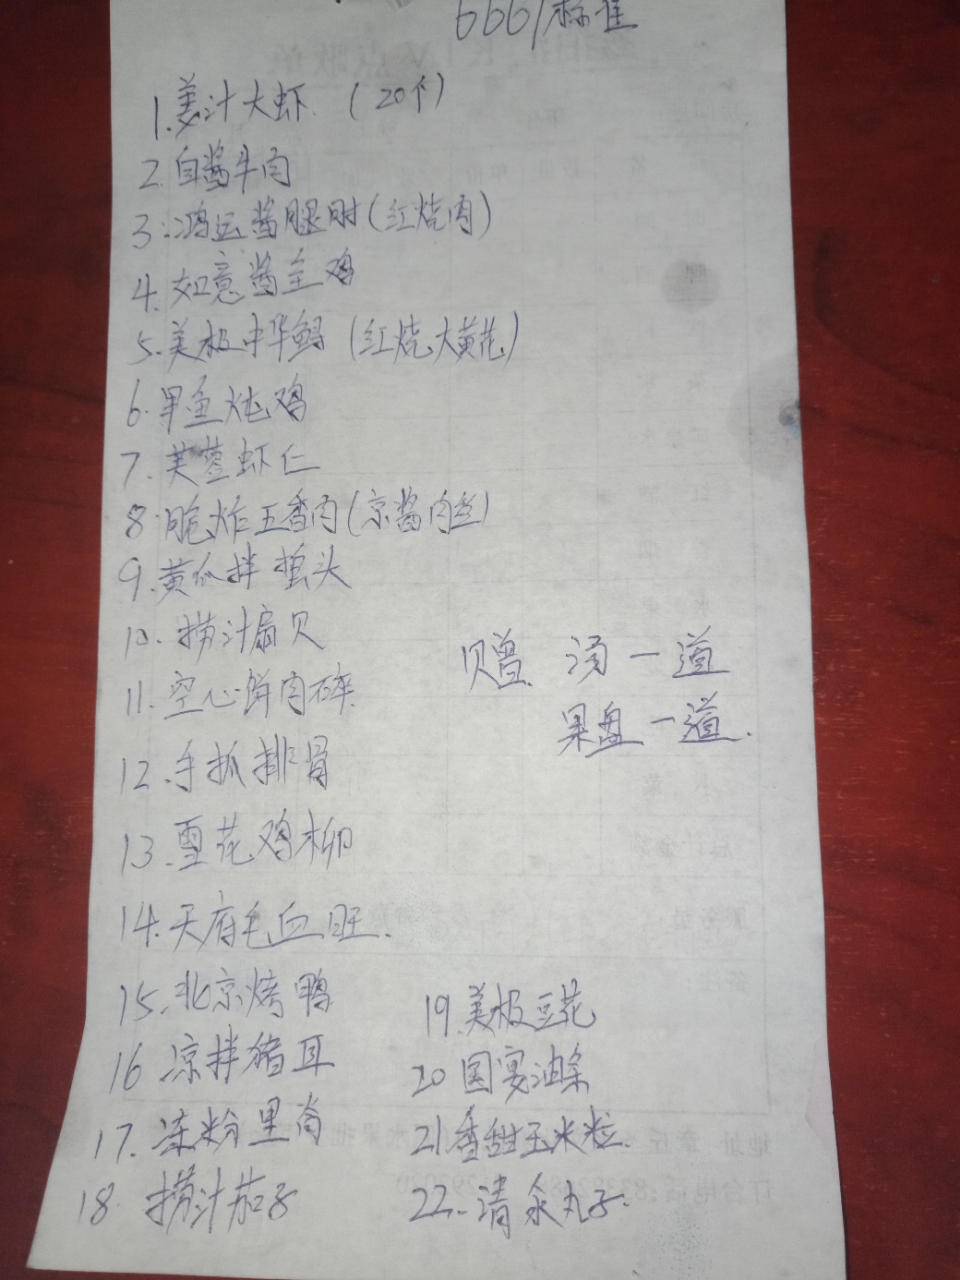 666/标准
1.姜汁大虾 (20个)
2.自酱牛肉
3.鸿运酱腿肘(红烧肉)
4.如意酱全鸡
5.美极中华鲟 (红烧大黄花)
6.甲鱼炖鸡
7.芙蓉虾仁
8.脆炸五香肉(京酱肉丝)
9.黄瓜拌蜇头
10.捞汁扇贝
11.空心饼肉碎
赠 汤一道
果盘一道.
12.手抓排骨
13.雪花鸡柳
14.天府毛血旺.
15.北京烤鸭
16 凉拌猪耳
17.冻粉里脊
18.捞汁茄子
19.美极豆花
20 国宴油条
21香甜玉米粒.
22.清汆丸子.